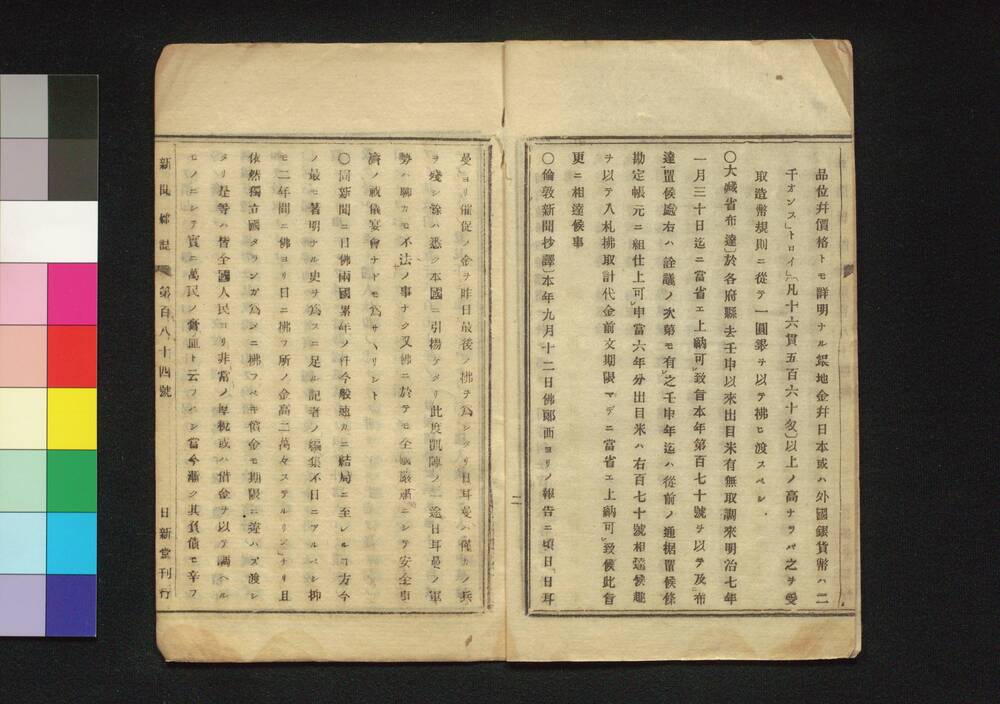 品位幷價格トモ詳明ナル銀地金幷日本或ハ外國銀貨幣ハ二
千オンス」トロイ」〔凡十六貫五百六十匁〕以上ノ高ナラバ之ヲ受
取造幣規則ニ從テ一圓銀ヲ以テ拂ヒ渡スベシ
〇大藏省布達〕於各府縣去壬申以來出目米有無取調來明治七年
一月三十日迄ニ當省エ上納可致旨本年第百七十號ヲ以テ及布
達置候處右ハ詮議ノ次第モ有之壬申年迄ハ從前ノ通据置候條
勘定帳元ニ組仕上可申當六年分出目米ハ右百七十號相達候趣
ヲ以テ入札拂取計代金前文期限マデニ當省エ上納可致候此旨
更ニ相達候事
〇倫敦新聞抄譯〕本年九月十二日佛郎西ヨリノ報告ニ頃日日耳
曼ヨリ催促ノ金ヲ昨日最後ノ拂ヲ爲シタリ日耳曼ハ僅カノ兵
ヲ殘シ餘ハ悉ク本國ニ引揚ケタリ此度凱陣ノ途日耳曼ノ軍
勢ハ聊カモ不法ノ事ナク又佛ニ於テモ全國嚴肅ニシテ安全事
濟ノ戰儀宴會ナドモ爲サヽリシト
〇同新聞ニ日佛兩國累年ノ件今般速カニ結局ニ至レルハ方今
ノ最モ著明ナル史ヲ爲スニ足ル記者ノ編集不日ニアルベシ抑
モ二年間ニ佛ヨリ日ニ拂フ所ノ金高二萬々ステルリン」ナリ且
依然獨立國タランガ爲メニ拂フベキ償金モ期限ニ違ハズ渡シ
タリ是等ハ皆全國人民ヨリ非常ノ厚税或ハ借金ヲ以テ調ヘル
モノニシテ實ニ萬民ノ膏血ト云フベシ當今漸ク其負債モ辛フ
新聞雜誌 第百八十四號 日新堂刊行
二